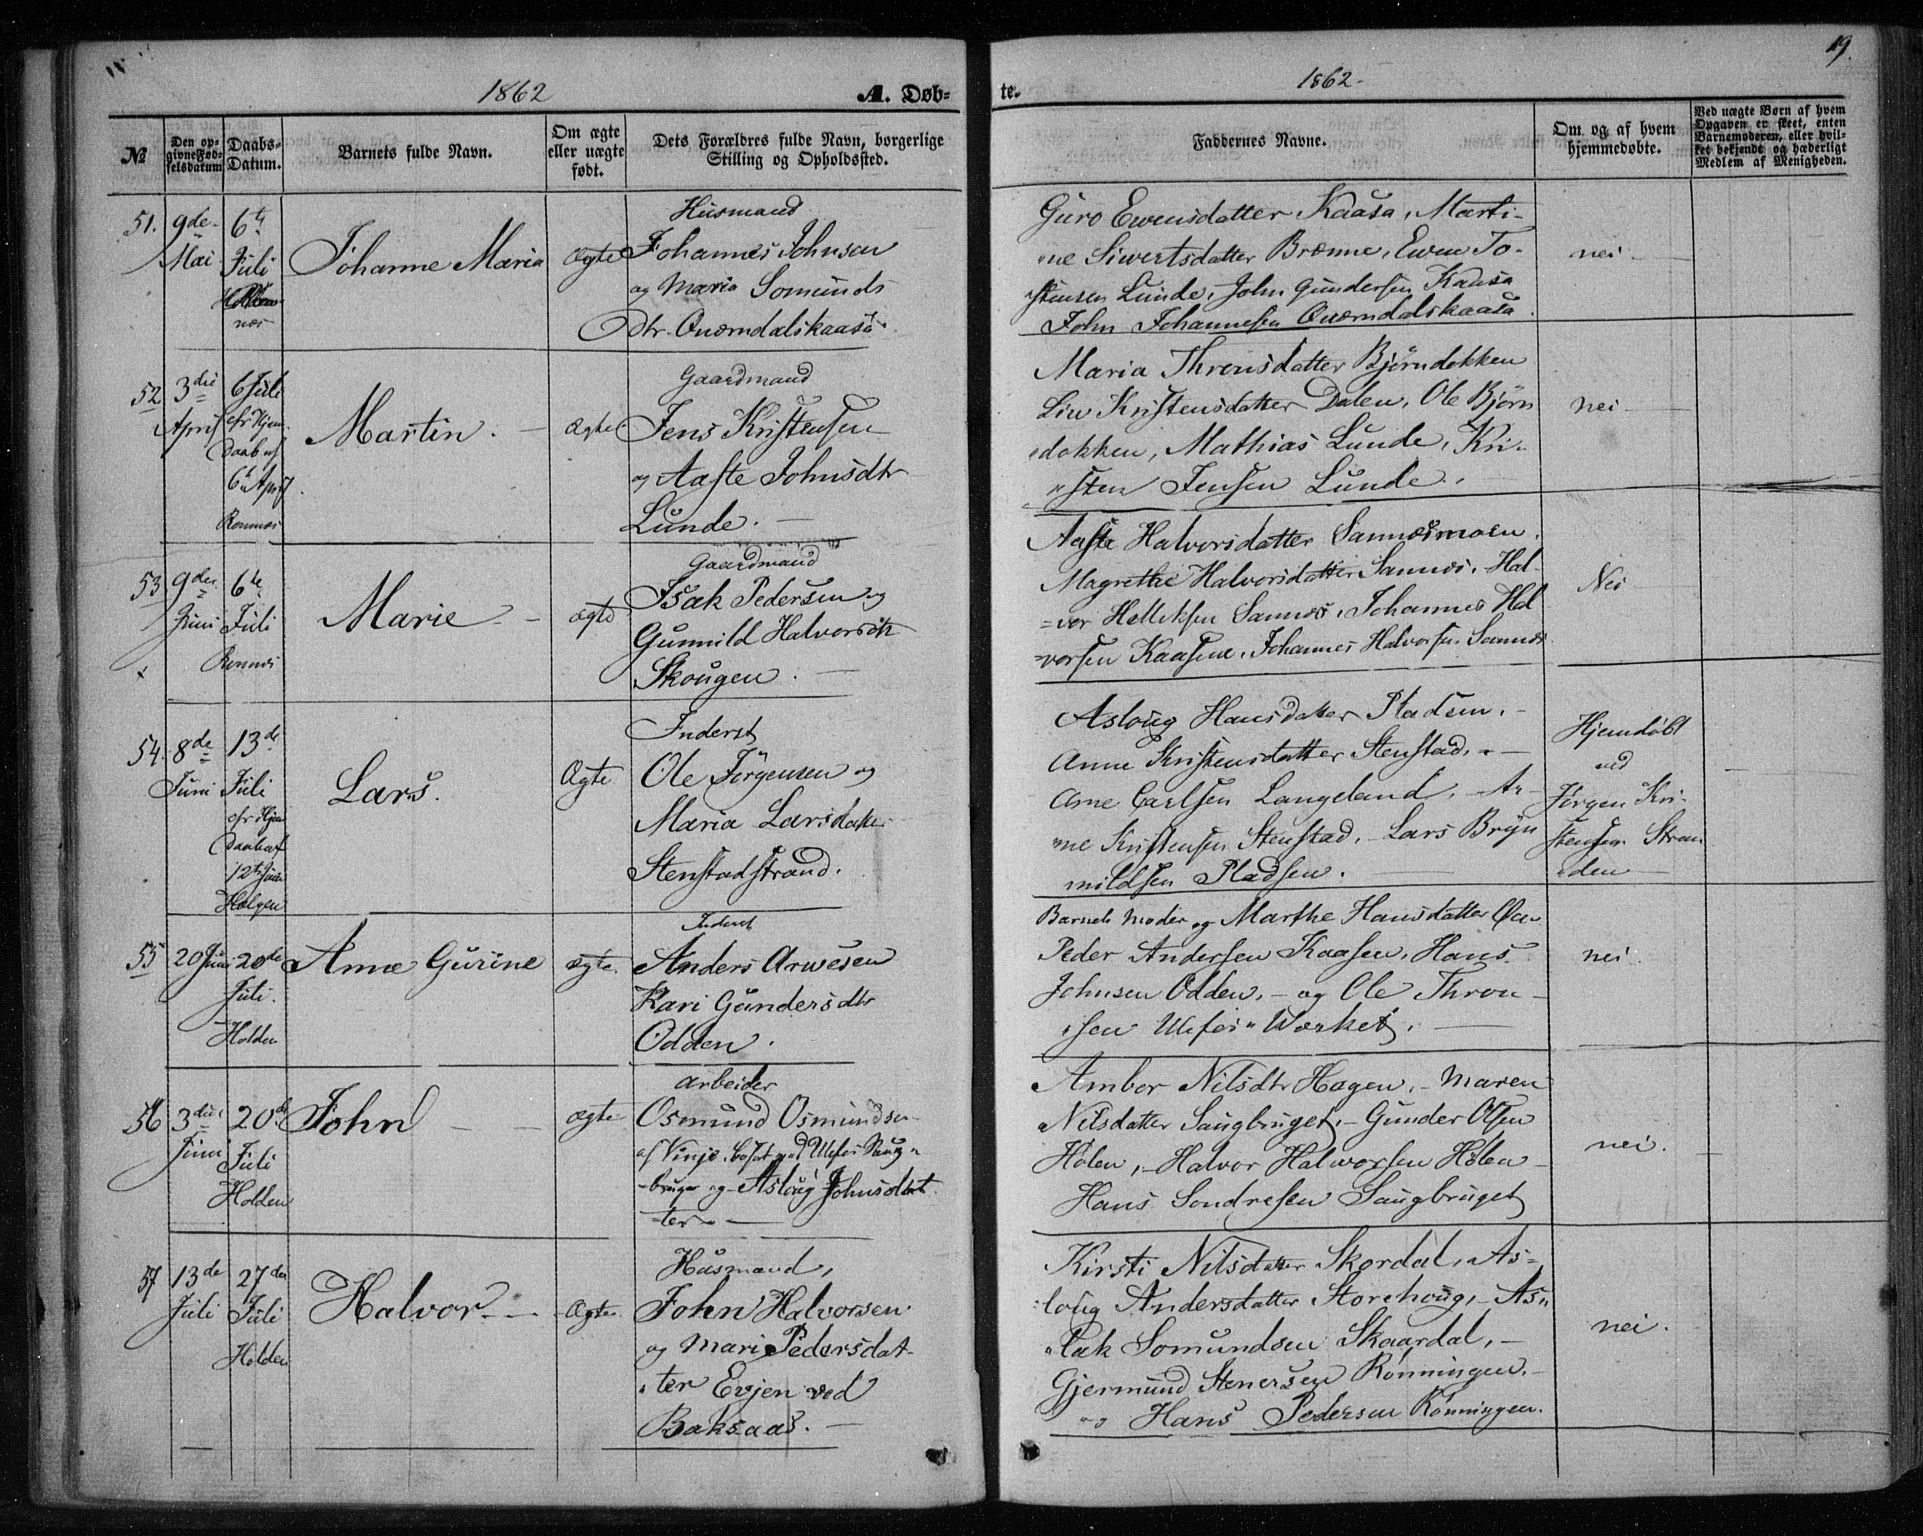 19.
1862
A. Døb-
te.
1862-
№
Den op-
givne Fød-
selsdatum
Daabs-
Datum.
Barnets fulde Navn.
Om ægte
eller uægte
født.
Dets Forældres fulde Navn, borgerlige
Stilling og Opholdssted.
Faddernes Navne.
Om og af hvem
hjemmedøbte.
Ved uægte Børn af hvem
Opgaven er skeet, enten
Barnemoderen, eller hvil-
ket bekjendt og hæderligt
Medlem af Menigheden.
51.
9de
Mai
6te
Juli
Johanne Maria
Ægte
Husmand
Johannes Johnsen
og Maria Somunds
Dtr. Qværndalskaasa.
Guro Ewensdatter Kaasa, Marti-
ne Siwertsdatter Brænne, Ewen To-
stensen Lunde, John Gundersen Kaasa
John Johannesen Qværndalskaasa
nei
52
3die
April
6 Juli
efr Hjem.
Daab af
6te April
Romnæs
Martin. -
Ægte.
Gaardmand
Jens Kristensen
og Aaste Johnsdtr
Lunde. -
Maria Thronsdatter Bjørndokken
Liv Kristensdatter Dalen, Ole Bjørn
dokken, Mathias Lunde, Kri-
sten Jensen Lunde.
nei
53
9de
Juni
6te
Juli
Romnæs
Marie -
ægte
Gaardmand
Isak Pedersen og
Gunnild Halvorsdtr
Skougen. -
Aaste Halvorsdatter Sannæsmoen.
Magrethe Halvorsdatter Sannæs, Hal-
=vor Helliksen Sannæs, Johannes Hal
=vorsen Kaasene, Johannes Halvorsen Sannæs
Nei
54.
8de
Juni
13de
Juli
efr Hjem
Daab af
12te Juni
Helgen
Lars.
Ægte
Inderst
Ole Jørgensen og
Maria Larsdatter
Stenstadstrand.
Asloug Hansdatter Pladsen. -
Anne Kristensdatter Stenstad. -
Arne Carlsen Langeland, - Ar-
ne Kristensen Stenstad, - Lars Bryn
mildsen Pladsen.
Hjemdøbt
ved
Jørgen Kri-
stensen Stran
den
55
20 Juni
20de
Juli.
Holden
Anne Gurine
ægte.
Inderst
Anders Arwesen
Kari Gundersdtr
Odden.
Barnets Moder og Marthe Hansdatter
Peder Andersen Kaasen, Hans
Johnsen Odden, - og Ole Thron-
sen Ulefos Wærket.
nei.
56
3die
Juni
20de
Juli
Holden
John
ægte
Arbeider
Osmund Osmundsen
af Vinje, bosat ved Ulefos Saug-
bruge og Asloug Johnsdat
ter. -
Ambor Nilsdtr Hagen, - Maren
Nilsdatter Saugbruget, - Gunder Olsen
Holen, - Halvor Halworsen Holen
Hans Sondresen Saugbruget
nei.
57
13de
Juli
27de
Juli
Holden
Halvor - -
Ægte.
Husmand,
John Halvorsen
og Mari Pedersdat-
ter Evjen ved
Baksaas. -
Kirsti Nilsdatter Skordal, As-
loug Andersdatter Storehoug, - As-
lak Somundsen Skaardal, -
Gjermund Stenersen Rønningen. -
og Hans Pedersen Rønningen.
nei.